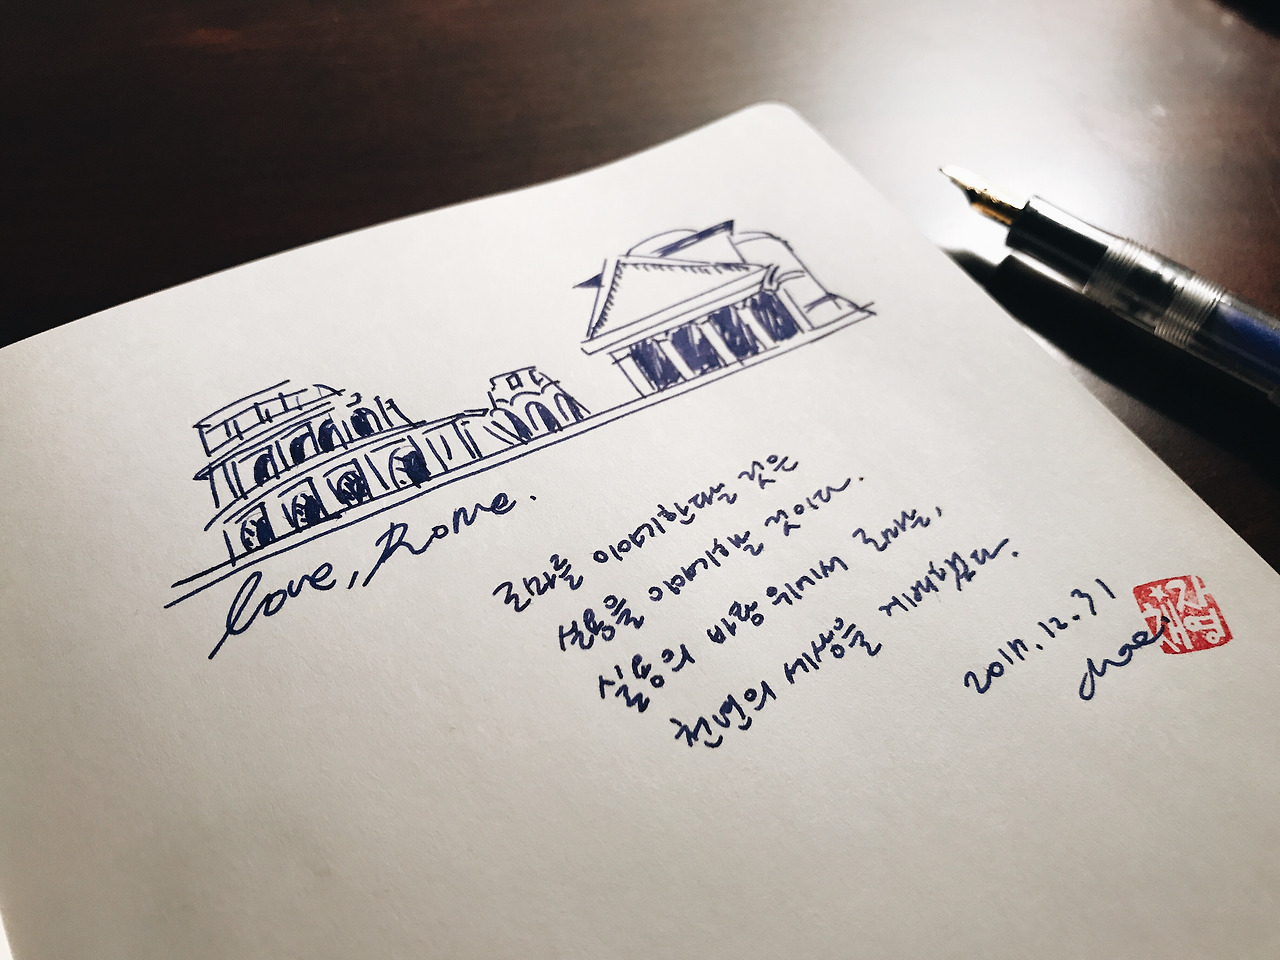 love, Rome.
로마를 이야기한다는 것은
실용을 이야기하는 것이다.
실용의 바탕 위에서 로마는,
천년의 세상을 지배했다.
2017.12.31
chae.